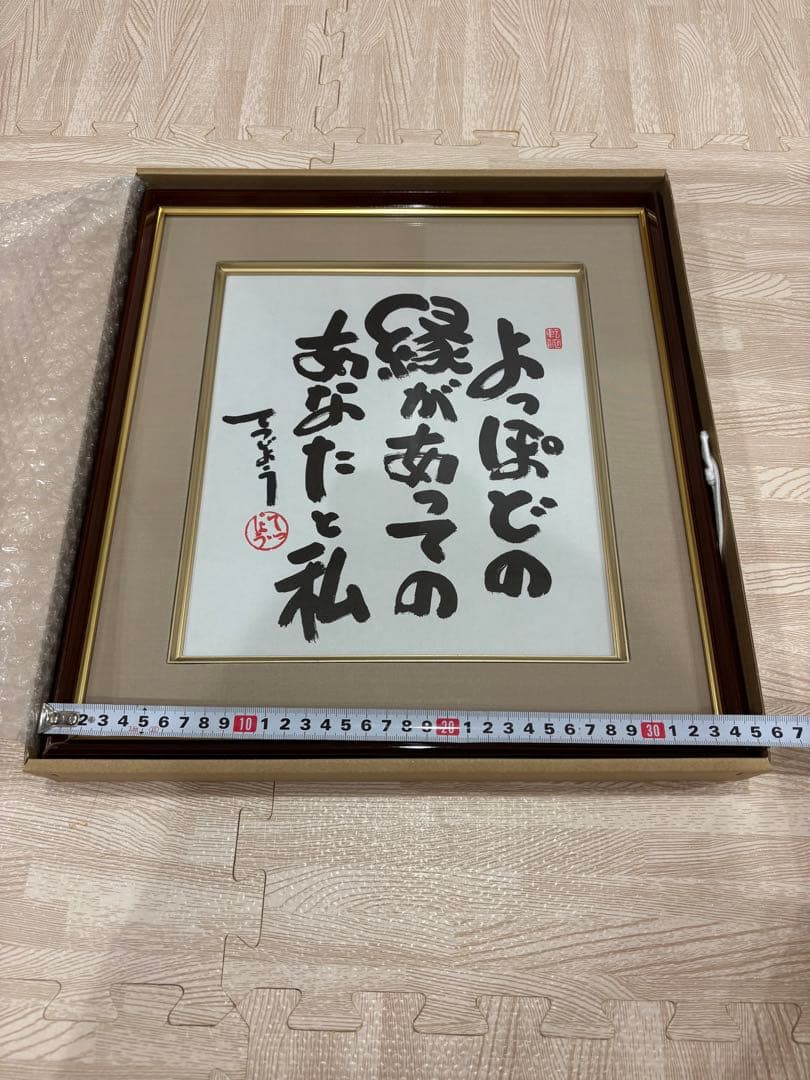 よっぽどの
縁があっての
あなたと私
てつじょう
てつじょう
2 3 4 5 6 7 8 9 10 1 2 3 4 5 6 7 8 9 20 1 2 3 4 5 6 7 8 9 30 1 2 3 4 5 6 7